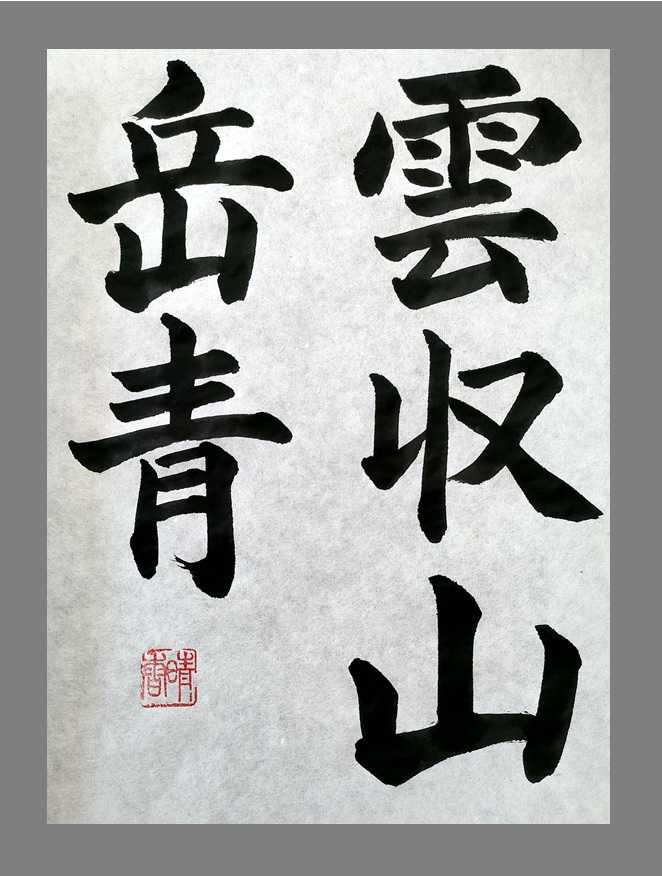 雲収山
岳青
晴